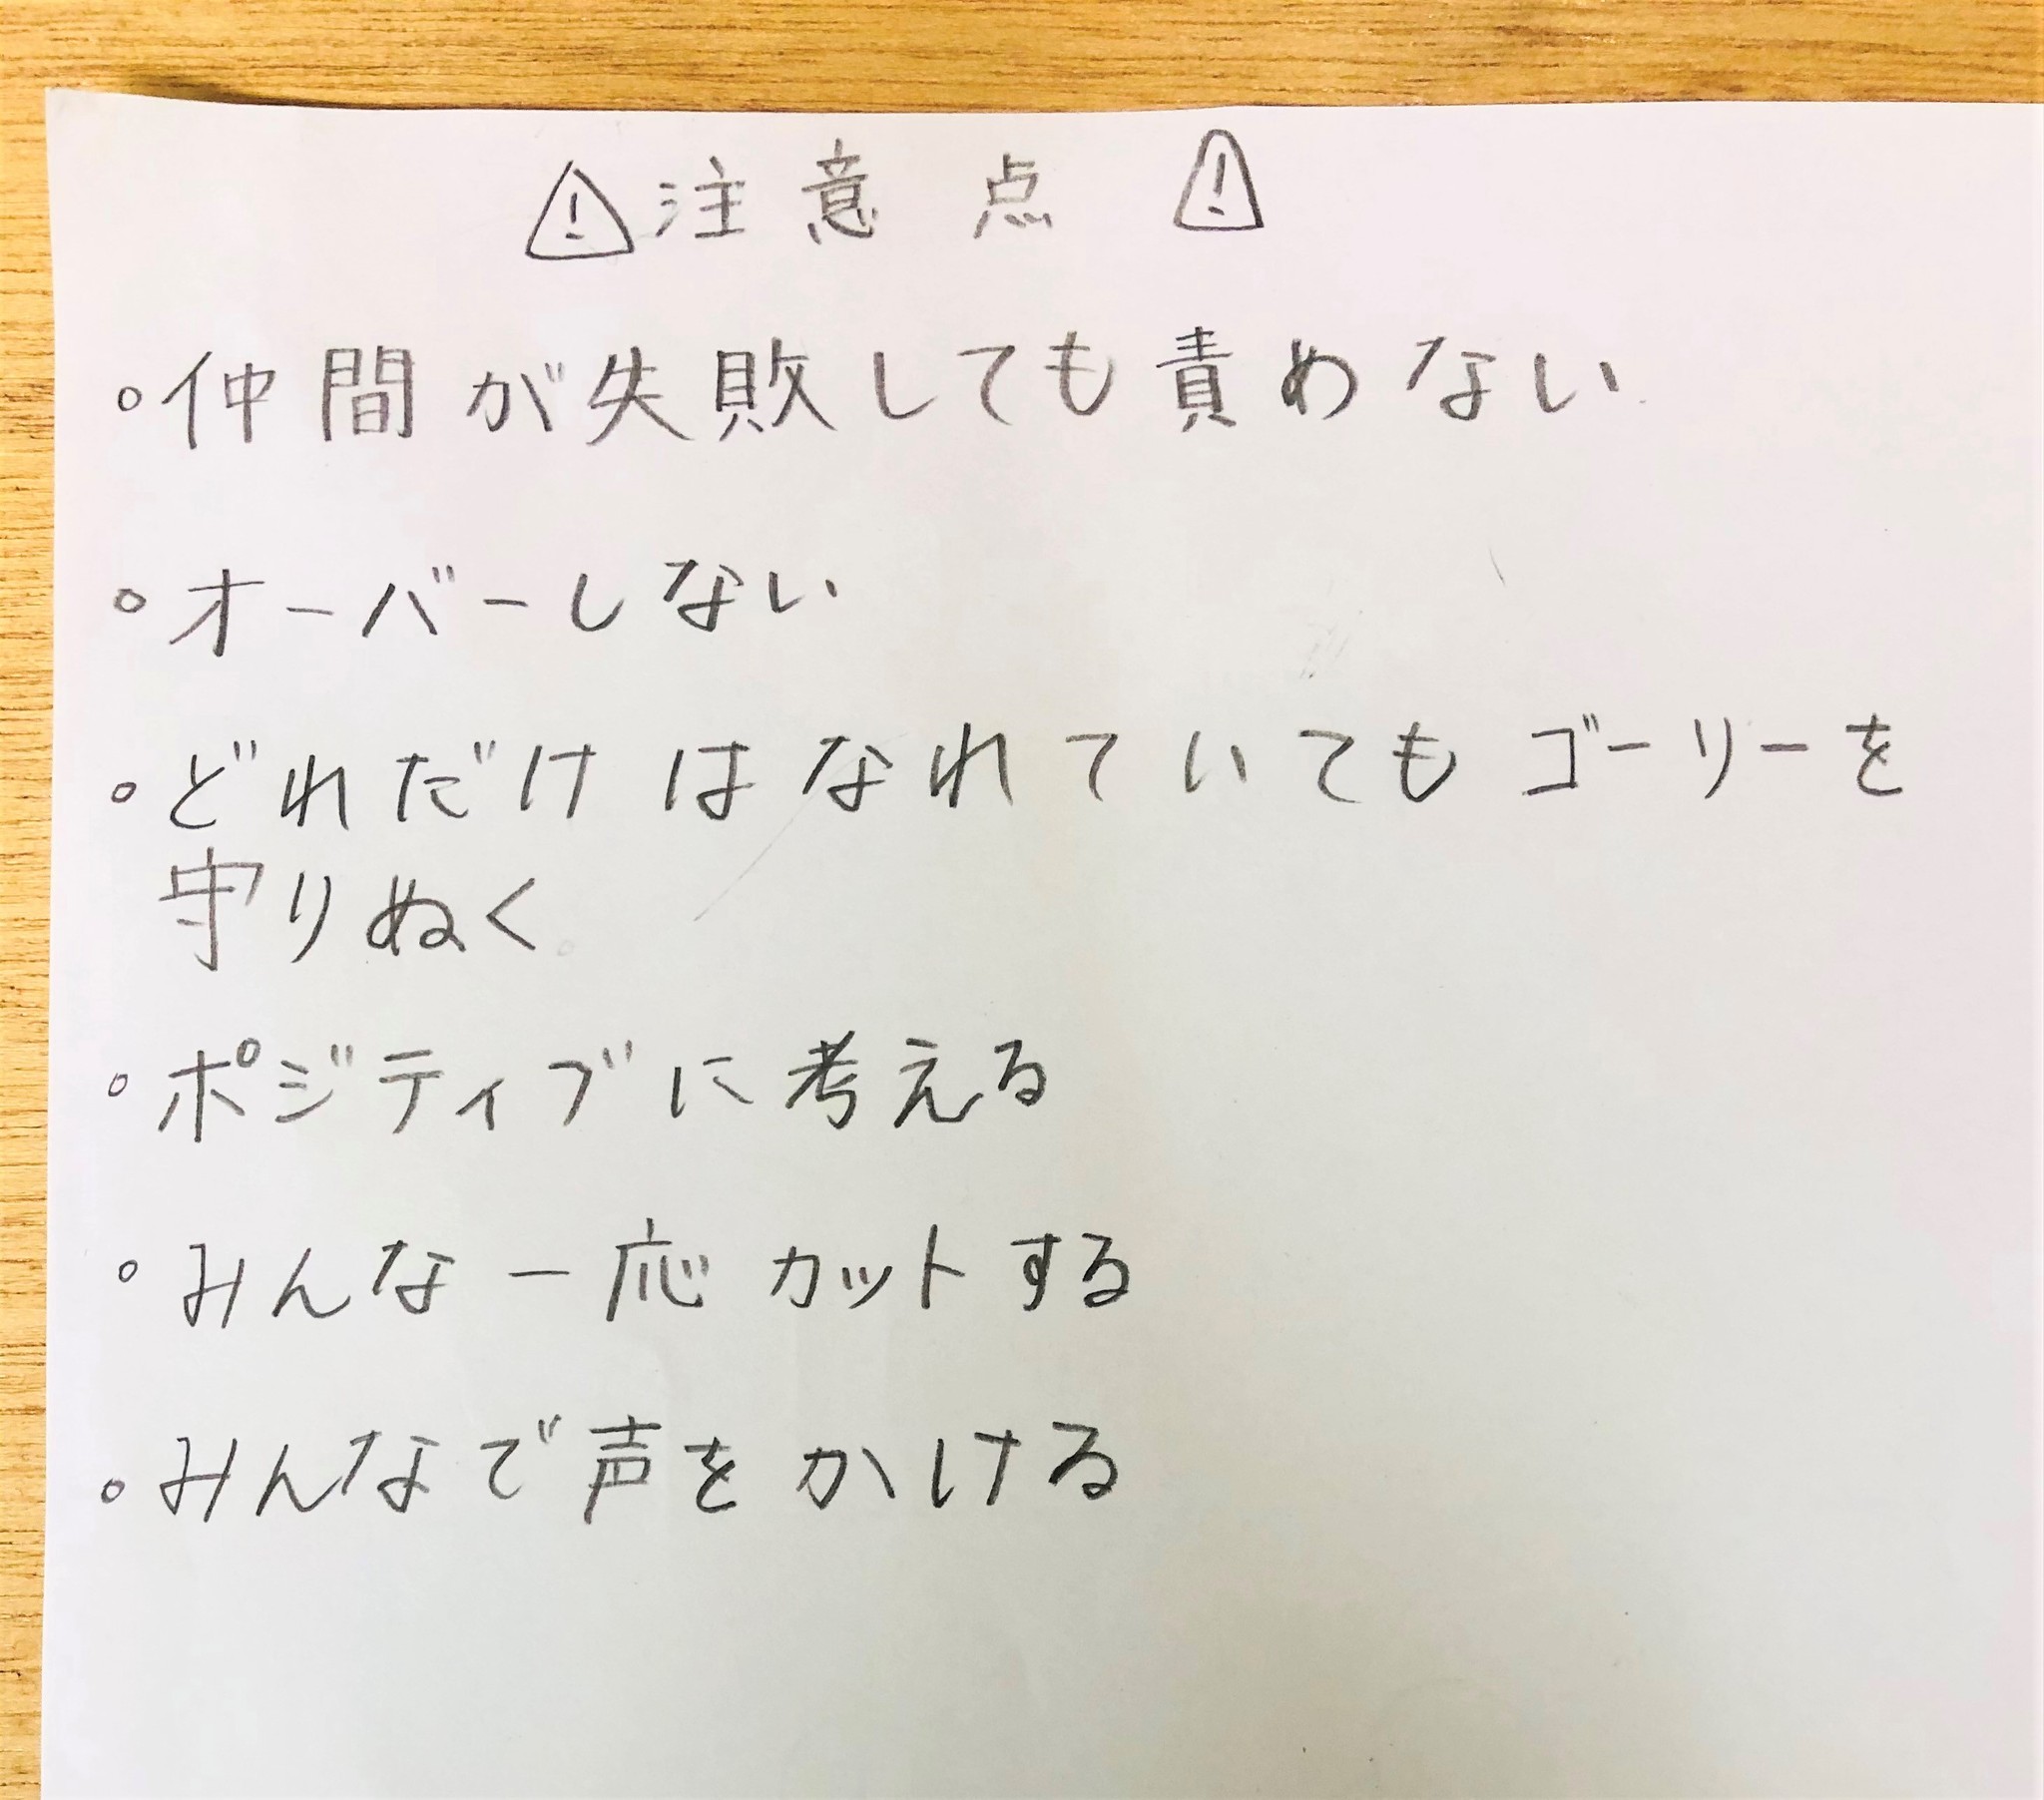 ⚠注意点⚠
。仲間が失敗しても責めない
。オーバーしない
。どれだけはなれていてもゴーリーを
守りぬく
。ポジティブに考える
。みんな一応カットする
。みんなで声をかける